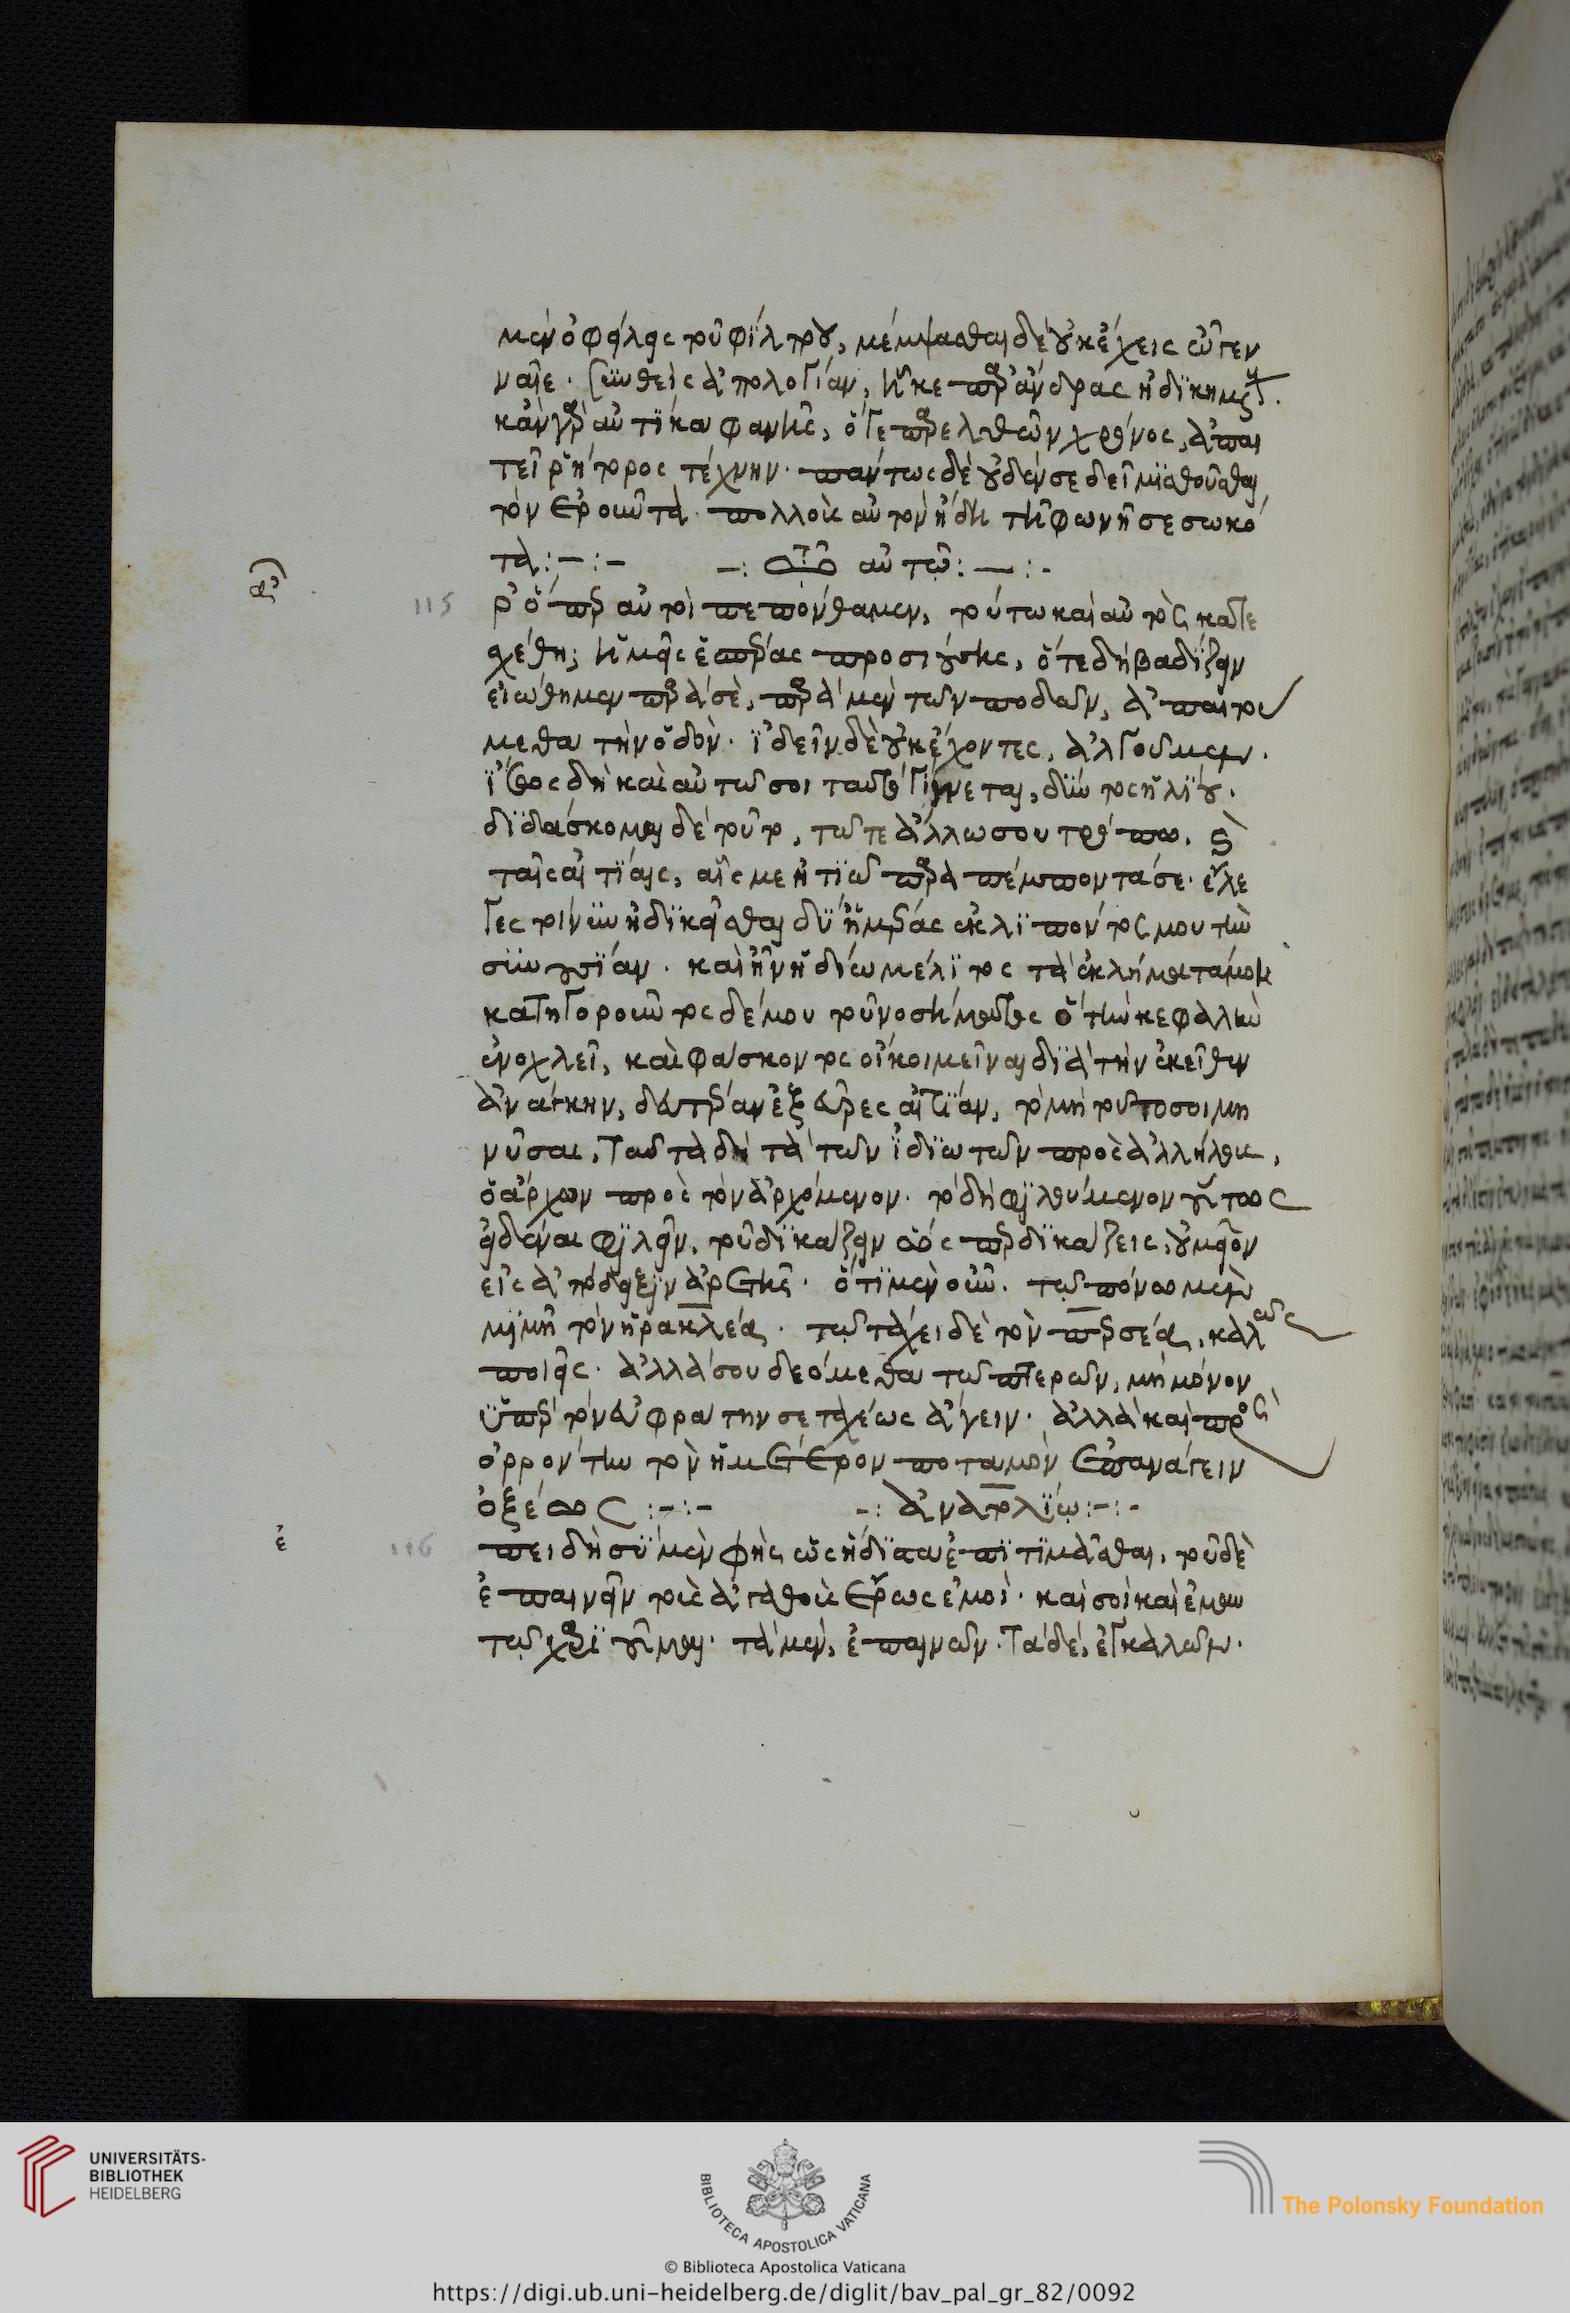 μὲν ὀφείλεις τοῦ φίλτρου, μέμψασθαι δὲ οὐκ ἔχεις ὦ γεν
ναῖε. συνθεὶς ἀπολογίαν, ἧκε παρ' ἄνδρας ἠδικημένους.
κἂν γὰρ αὐτίκα φανῇς, ὅγε παρελθὼν χρόνος, ἀπαι
τεῖ ῥήτορος τέχνην. πάντως δὲ οὐδέν σε δεῖ μισθοῦσθαι
τὸν ἐροῦντα πολλοὺς αὐτὸν ἤδη τῇ φωνῇ σεσωκό
τα:-:- -: τῷ αὐτῷ:-:-
115 ὅπερ αὐτοὶ πεπόνθαμεν, τούτω καὶ αὐτὸς κατε
χέθη; ἡμεῖς ἑσπέρας προσιούσης, ὅτε δὴ βαδίζειν
εἰώθημεν παρὰ σὲ, παρὰ μὲν τῶν ποδῶν, ἀπαιτού
μεθα τὴν ὁδὸν. ἰδεῖν δὲ οὐκ ἔχοντες, ἀλγοῦμεν.
ἴσως δὴ καὶ αὐτῶ σοι ταυτὸ γίνεται, δύντος ἡλίου.
διδασκόμεθα δὲ τοῦτο, τῶ τε ἄλλω σου τρόπω. καὶ
ταῖς αἰτίαις, αἷς με ᾐτιῶ παραπέμποντά σε. ἔλε
γές τοίνυν ἠδικεῖσθαι δύ' ἡμέρας ἐκλιπόντος μου τὴν
συνουσίαν. καὶ ἦν ἡδίω μέλιτος τὰ ἐκλήματά μοι
κατηγοροῦντος δέ μου τοῦ νοσήματος ὃ τὴν κεφαλὴν
ἐνοχλεῖ, καὶ φάσκοντος οἴκοι μεῖναι διὰ τὴν ἐκεῖθεν
ἀνάγκην, δευτέραν ἐξεῦρες αἰτίαν, τὸ μὴ τοῦτό σοι μη
νῦσαι. ταῦτα δὴ τὰ τῶν ἰδιωτῶν πρὸς ἀλλήλους,
ὁ ἄρχων πρὸς τὸν ἀρχόμενον. τὸ δὴ φιλούμενον οὕτως
εἰδέναι φιλεῖν, τοῦ δικάζειν ὡς περ δικάζεις, οὐ μεῖον
εἰς ἀπόδειξιν ἀρετῆς. ὅτι μὲν οὖν τῶ πόνω μὲν
μιμῇ τὸν ἡρακλέα. τῶ τάχει δὲ τὸν περσέα, καλῶς
ποιεῖς. ἀλλά σου δεόμεθα τῶν πτερῶν, μὴ μόνον
ὑπὲρ τὸν εὐφράτην σε ταχέως ἄγειν. ἀλλὰ καὶ πρὸς
ὀρρόντην τὸν ἡμέτερον ποταμὸν ἐπανάγειν
ὀξέως:-:- -: ἀνατολίω:-:-
ἐ 116 πειδὴ σὺ μὲν φὴς ὡς ἥδιστα ἐπιτιμᾶσθαι. τοῦ δὲ
ἐπαινεῖν τοὺς ἀγαθοὺς ἔρως ἐμοὶ. καὶ σοὶ καὶ ἐμαυ
τῶ χαριοῦμαι. τὰ μὲν, ἐπαινῶν. τὰ δὲ, ἐγκαλῶν.
UNIVERSITÄTS-
BIBLIOTHEK
HEIDELBERG
BIBLIOTECA APOSTOLICA VATICANA
The Polonsky Foundation
© Biblioteca Apostolica Vaticana
https://digi.ub.uni-heidelberg.de/diglit/bav_pal_gr_82/0092